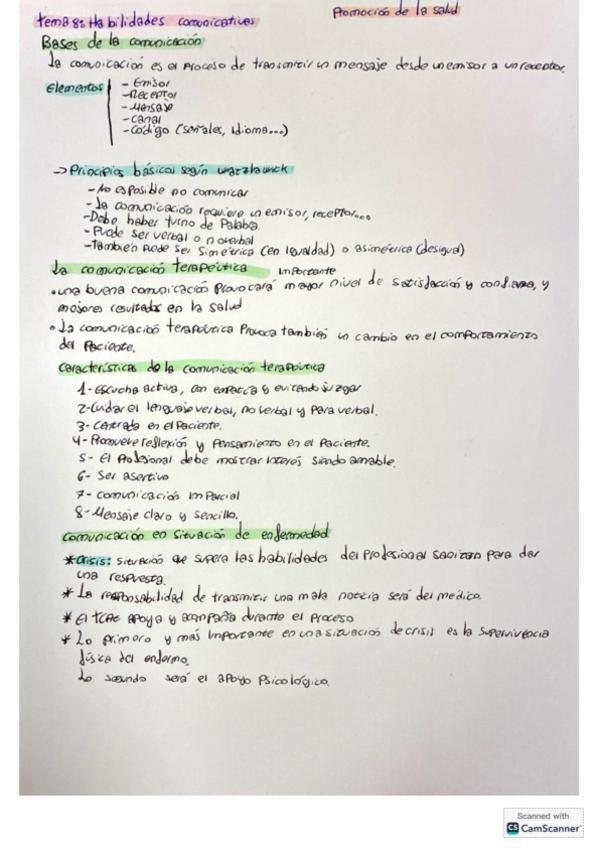 Tema 8: Habilidades comunicativas
Promoción de la salud
Bases de la comunicación
La comunicación es el proceso de transmitir un mensaje desde un emisor a un receptor.
Elementos
- Emisor
- Receptor
- Mensaje
- Canal
- Código (señales, idioma...)
-> Principios básicos según watzlawick
- No es posible no comunicar
- La comunicación requiere un emisor, receptor...
- Debe haber turno de palabra
- Puede ser verbal o no verbal
- También puede ser simétrica (en igualdad) o asimétrica (desigual)
La comunicación terapéutica importante
• una buena comunicación provocará mayor nivel de satisfacción y confianza, y
mejores resultados en la salud
• La comunicación terapéutica provoca también un cambio en el comportamiento
del paciente.
Características de la comunicación terapéutica
1- Escucha activa, con empatía y evitando juzgar
2- Cuidar el lenguaje verbal, no verbal y paraverbal.
3- Centrada en el paciente.
4- Promueve reflexión y pensamiento en el paciente.
5- El profesional debe mostrar interés siendo amable.
6- Ser asertivo
7- comunicación imparcial
8- Mensaje claro y sencillo.
Comunicación en situación de enfermedad
* Crisis: situación que supera las habilidades del profesional para dar
una respuesta.
* La responsabilidad de transmitir una mala noticia será del médico.
* El TCAE apoya y acompaña durante el proceso
* Lo primero y más importante en una situación de crisis es la supervivencia
física del enfermo.
Lo segundo será el apoyo psicológico.
Scanned with
CS CamScanner